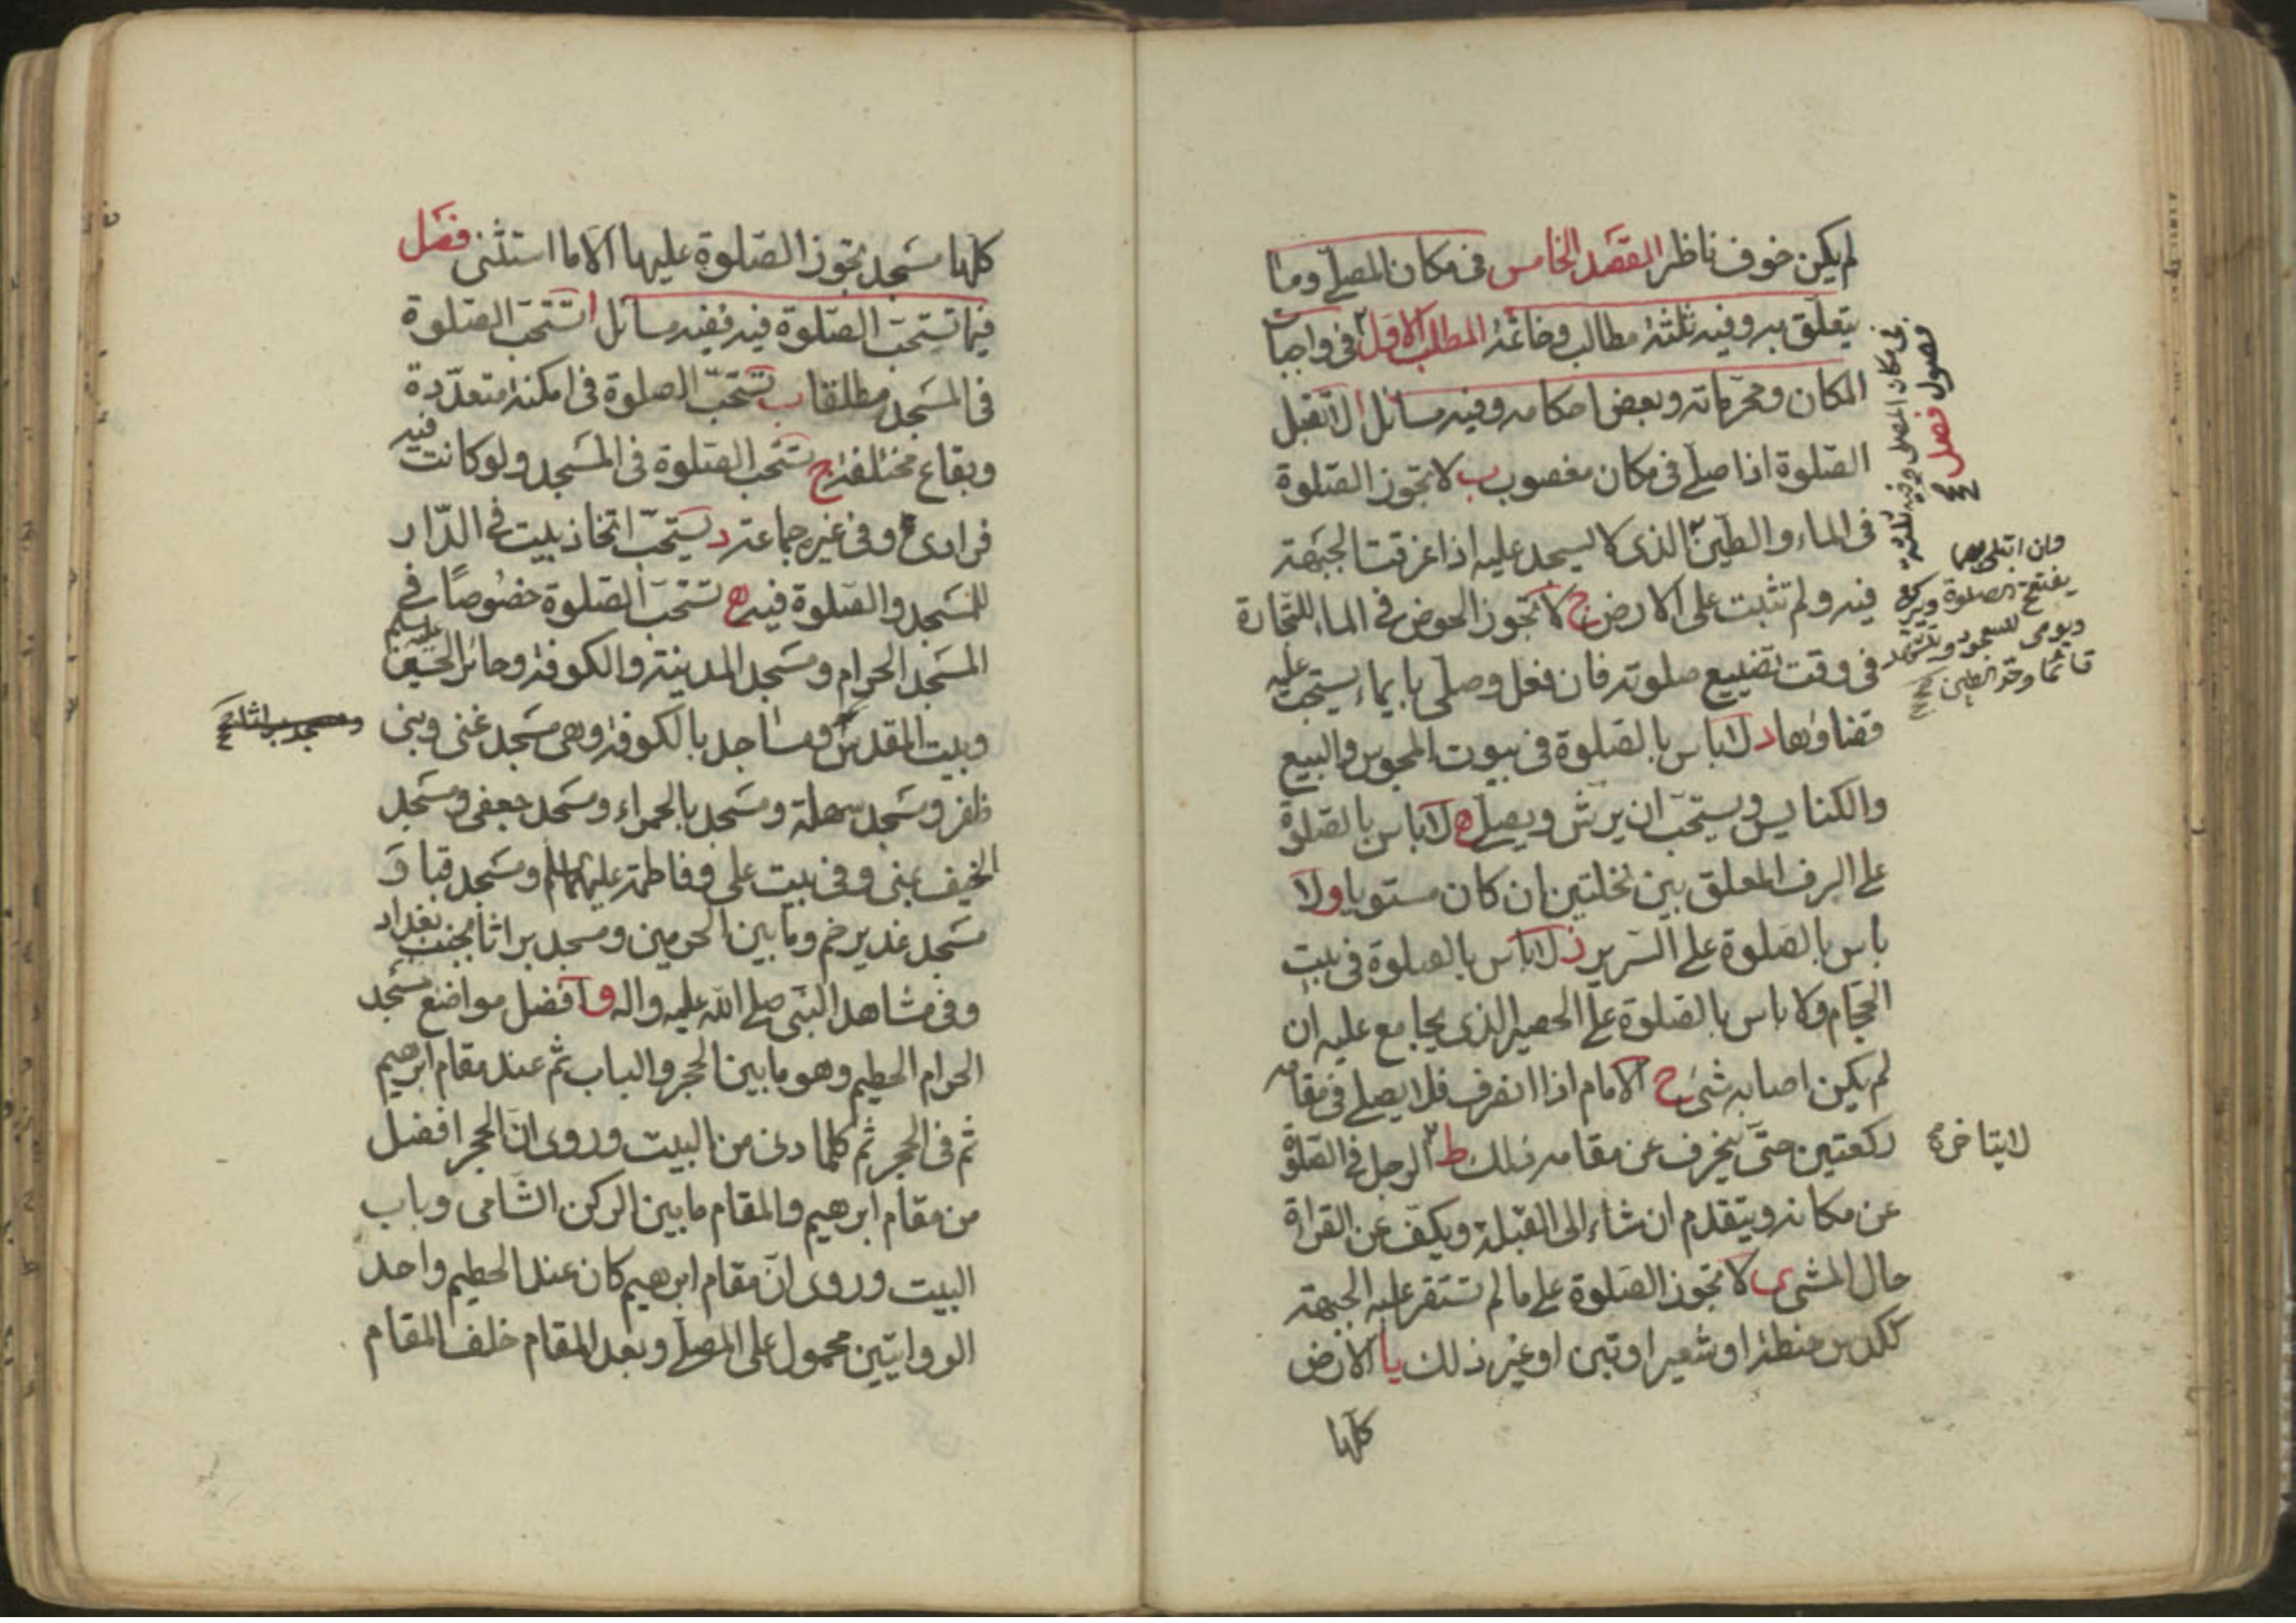 لم يكن خوف ناظر المقصد الخامس فى مكان المصلى وما
يتعلق به وفيه ثلثة مطالب وخاتمة المطلب الاول فى واجبات
المكان ومحرماته وبعض احكامه وفيه مسائل ا لا تقبل
الصلوة اذا صلى فى مكان مغصوب ب لا تجوز الصلوة
فى الماء والطين الذى لا يسجد عليه اذا غرقت الجبهة
فيه ولم تثبت على الارض ج لا تجوز الخوض فى الماء للتجارة
فى وقت تضييع صلوته فان فعل وصلى بايماء يستحب عليه
قضاؤها د لا باس بالصلوة فى بيوت المجوس والبيع
والكنايس ويستحب ان يرش ويصلى ه لا باس بالصلوة
على الرف المعلق بين نخلتين ان كان مستويا و لا
باس بالصلوة على السرير ز لا باس بالصلوة فى بيت
الحجام ولا باس بالصلوة على الحصير الذى يجامع عليه ان
لم يكن اصابه شئ ح الامام اذا انصرف فلا يصلى فى مقامه
ركعتين حتى ينحرف عن مقامه ذلك ط الرجل فى الصلوة
عن مكانه ويتقدم ان شاء الى القبلة ويكف عن القراة
حال المشى ى لا تجوز الصلوة على ما لم تستقر عليه الجبهة
ككدس حنطة او شعير او تبن او غير ذلك يا الارض
كلها
فصول فصل
فى مكان المصلى وفيه ثلثة
وان ابتلى بهما
يفتتح الصلوة ويركع
ويومى للسجود ويتشهد
قائما وحد الطين
لا يتاخر
كلها مسجد تجوز الصلوة عليها الا ما استثنى فصل
فيما تستحب الصلوة فيه ففيه مسائل ا تستحب الصلوة
فى المسجد مطلقا ب تستحب الصلوة فى امكنة متعددة
وبقاع مختلفة ج تستحب الصلوة فى المسجد ولو كانت فيه
فرادى وفى غيره جماعة د يستحب اتخاذ بيت فى الدار
للمسجد والصلوة فيه ه تستحب الصلوة خصوصا فى
المسجد الحرام ومسجد المدينة والكوفة وحائر الحسين عليه السلم
وبيت المقدس ومساجد بالكوفة وهى مسجد غنى وبنى
ظفر ومسجد سهلة ومسجد بالحمراء ومسجد جعفى ومسجد
الخيف بمنى وفى بيت على وفاطمة عليهما السلم ومسجد قبا و
مسجد غدير خم وما بين الحرمين ومسجد براثا بجنب بغداد
وفى مشاهد النبى صلى الله عليه واله و افضل مواضع مسجد
الحرام الحطيم وهو ما بين الحجر والباب ثم عند مقام ابرهيم
ثم فى الحجر ثم كلما دنى من البيت وروى ان الحجر افضل
من مقام ابرهيم والمقام ما بين الركن الشامى وباب
البيت وروى ان مقام ابرهيم كان عند الحطيم واحد
الروايتين محمول على المصلى وبعد المقام خلف المقام
ومسجد براثا